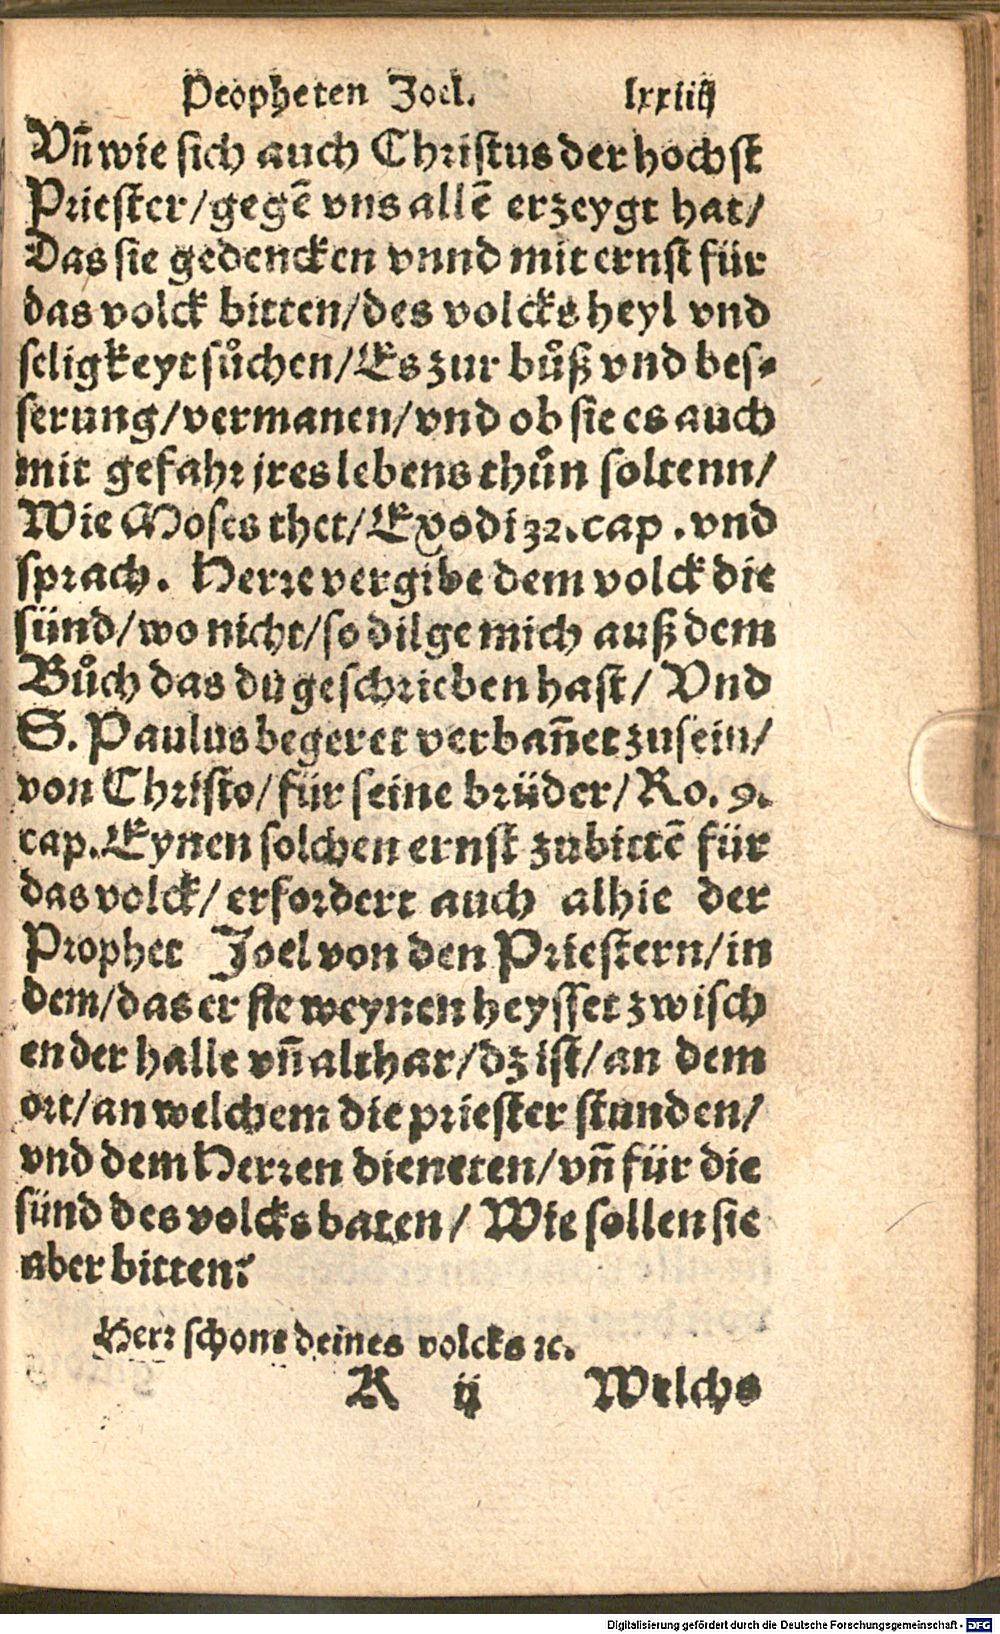 Propheten Joel. lxxiiij
Vñ wie sich auch Christus der hochst
Priester/gegē vns allē erzeygt hat/
Das sie gedencken vnnd mit ernst für
das volck bitten/des volcks heyl vnd
seligkeyt sůchen/Es zur bůß vnd bes-
serung/vermanen/vnd ob sie es auch
mit gefahr jres lebens thůn soltenn/
Wie Moses thet/Exodi 32. cap. vnd
sprach. Herre vergibe dem volck die
sünd/wo nicht/so dilge mich auß dem
Bůch das du geschrieben hast/ Vnd
S. Paulus begeret verbañet zusein/
von Christo/für seine brüder/Ro. 9.
cap. Eynen solchen ernst zubittē für
das volck/ erfordert auch alhie der
Prophet Joel von den Priestern/in
dem/das er sie weynen heysset zwisch
en der halle vñ althar/dz ist/an dem
ort/an welchem die priester stunden/
vnd dem Herren dieneten/vñ für die
sünd des volcks baten/ Wie sollen sie
aber bitten?
Herr schone deines volcks ꝛc.
K ij Welchs
Digitalisierung gefördert durch die Deutsche Forschungsgemeinschaft - DFG